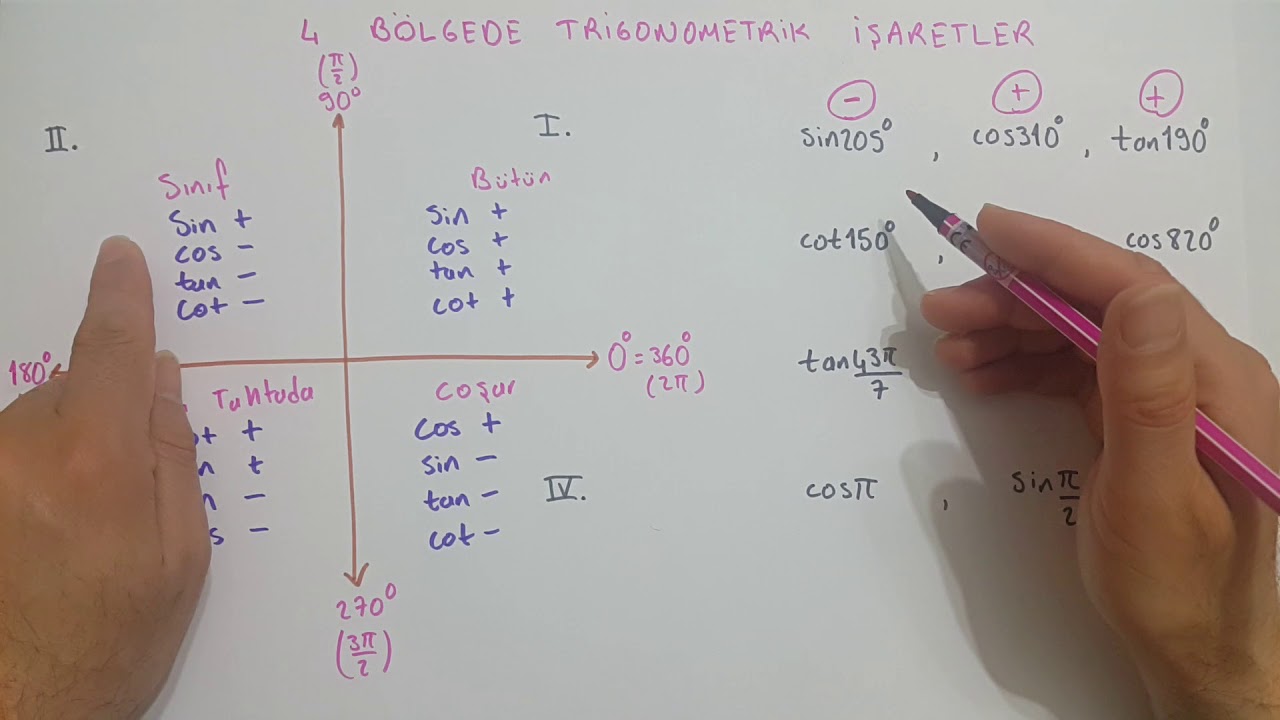 4 BÖLGEDE TRİGONOMETRİK İŞARETLER
(π/2)
90°
II.
Sınıf
Sin +
cos −
tan −
cot −
I.
Bütün
sin +
cos +
tan +
cot +
180°
0° = 360°
(2π)
Tahtada
+
+
−
−
Coşar
Cos +
sin −
tan −
cot −
IV.
270°
(3π/2)
− + +
sin205° , cos310° , tan190°
cot150° , cos820°
tan43π/7
cosπ , sinπ/2